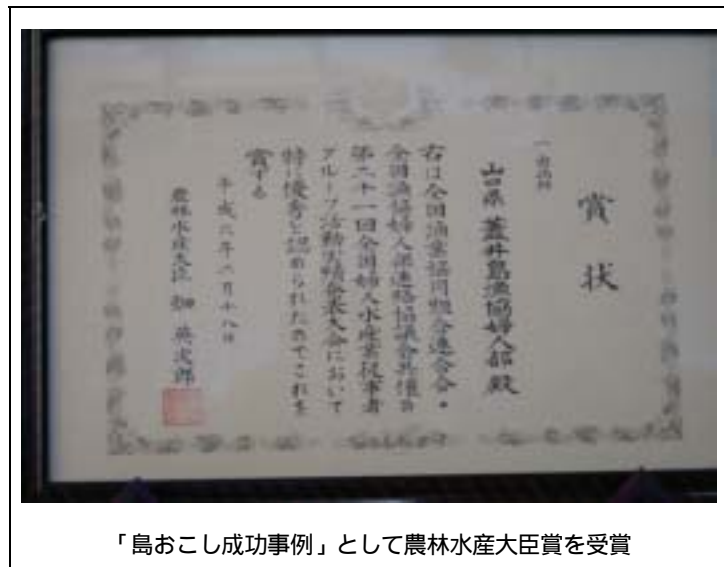 賞状
山口県 蓋井島漁協婦人部 殿
右は全国漁業協同組合連合会・
全国漁協婦人部連絡協議会共催の
第二十一回全国婦人水産業従事者
グループ活動実績発表大会において
特に優秀と認められたのでこれを
賞する
平成六年六月十八日
農林水産大臣 畑 英次郎
「島おこし成功事例」として農林水産大臣賞を受賞